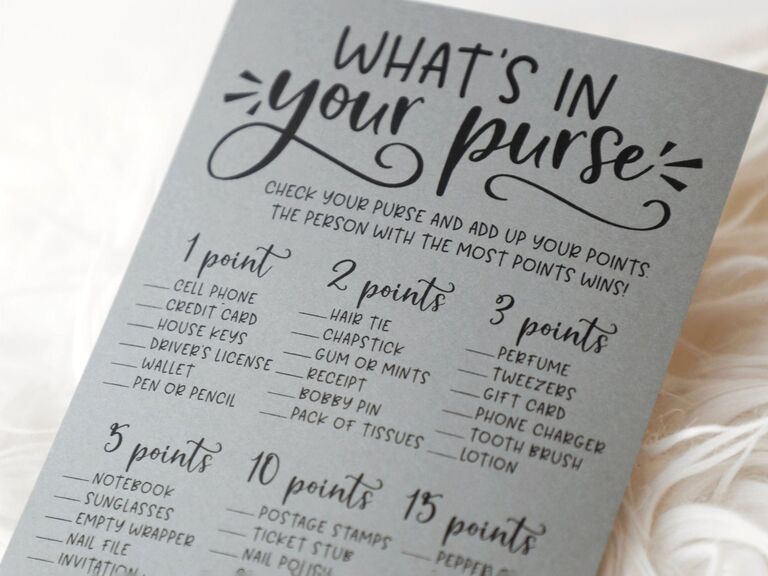 WHAT'S IN
your purse
CHECK YOUR PURSE AND ADD UP YOUR POINTS.
THE PERSON WITH THE MOST POINTS WINS!
1 point
CELL PHONE
CREDIT CARD
HOUSE KEYS
DRIVER'S LICENSE
WALLET
PEN OR PENCIL
2 points
HAIR TIE
CHAPSTICK
GUM OR MINTS
RECEIPT
BOBBY PIN
PACK OF TISSUES
3 points
PERFUME
TWEEZERS
GIFT CARD
PHONE CHARGER
TOOTH BRUSH
LOTION
5 points
NOTEBOOK
SUNGLASSES
EMPTY WRAPPER
NAIL FILE
INVITATION
10 points
POSTAGE STAMPS
TICKET STUB
NAIL POLISH
15 points